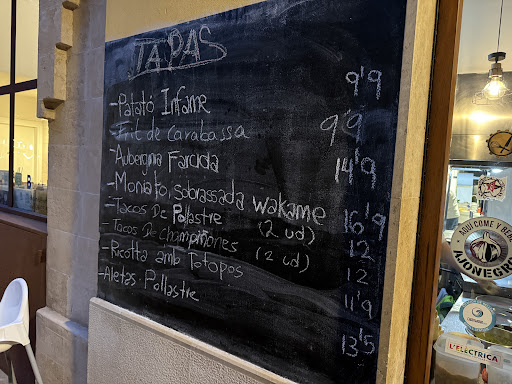 TAPAS
-Patató Infame 9'9
-Fit de Carabassa 9'9
-Aubergina Farcida 14'9
-Moniato, Sobrassada Wakame 16'9
-Tacos De Pollastre (2 ud) 12
-Tacos De Champiñones (2 ud) 12
-Ricotta amb Totopos 11'9
-Aletas Pollastre 13'5
AQUI COME Y BEBE
MONEGRO
L'ELÈCTRICA